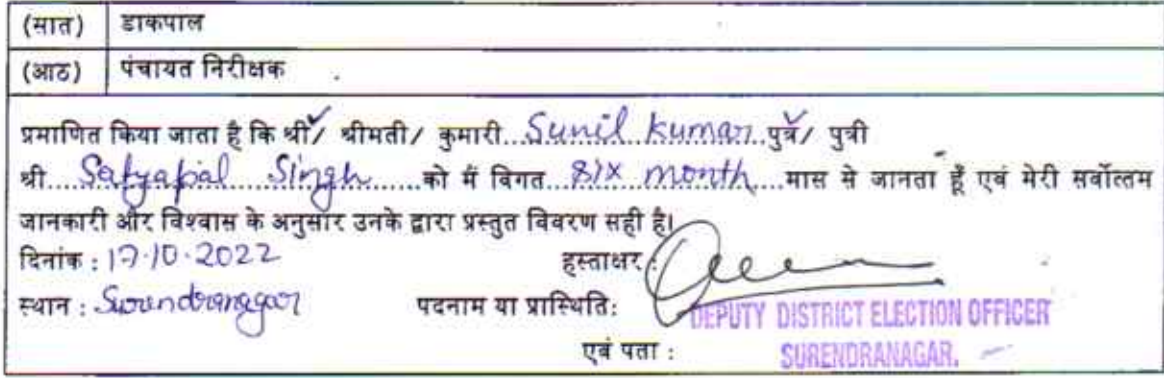 (सात) डाकपाल
(आठ) पंचायत निरीक्षक
प्रमाणित किया जाता है कि श्री/ श्रीमती/ कुमारी...Sunil Kumar...पुत्र/ पुत्री
श्री....Satyapal Singh......को मैं विगत...six month....मास से जानता हूँ एवं मेरी सर्वोत्तम
जानकारी और विश्वास के अनुसार उनके द्वारा प्रस्तुत विवरण सही है।
दिनांक : 17.10.2022 हस्ताक्षर :
स्थान : Surendranagar पदनाम या प्रास्थिति: DEPUTY DISTRICT ELECTION OFFICER
एवं पता : SURENDRANAGAR.